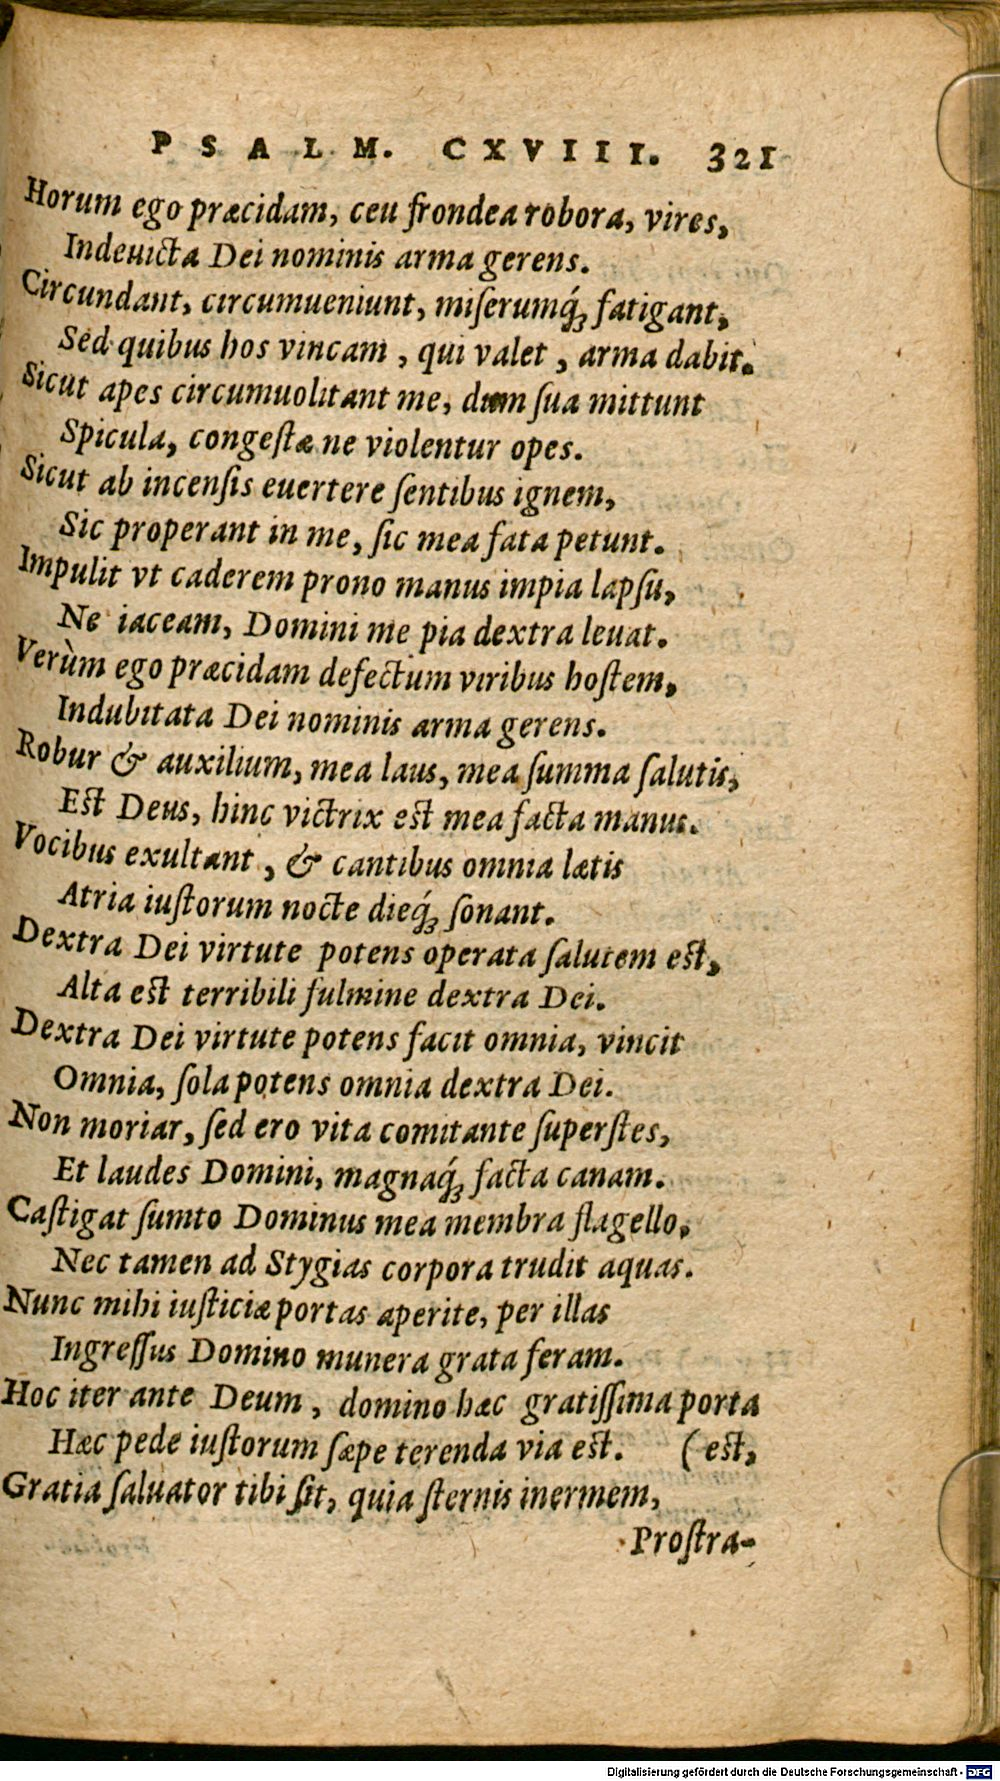 PSALM. CXVIII. 321
Horum ego præcidam, ceu frondea robora, vires,
Indeuicta Dei nominis arma gerens.
Circundant, circumueniunt, miſerumq́; fatigant,
Sed quibus hos vincam, qui valet, arma dabit.
Sicut apes circumuolitant me, dum ſua mittunt
Spicula, congeſtæ ne violentur opes.
Sicut ab incenſis euertere ſentibus ignem,
Sic properant in me, ſic mea fata petunt.
Impulit vt caderem prono manus impia lapſu,
Ne iaceam, Domini me pia dextra leuat.
Verùm ego præcidam defectum viribus hoſtem,
Indubitata Dei nominis arma gerens.
Robur & auxilium, mea laus, mea ſumma ſalutis,
Eſt Deus, hinc victrix eſt mea facta manus.
Vocibus exultant, & cantibus omnia lætis
Atria iuſtorum nocte dieq́; ſonant.
Dextra Dei virtute potens operata ſalutem eſt,
Alta eſt terribili fulmine dextra Dei.
Dextra Dei virtute potens facit omnia, vincit
Omnia, ſola potens omnia dextra Dei.
Non moriar, ſed ero vita comitante ſuperſtes,
Et laudes Domini, magnaq́; facta canam.
Caſtigat ſumto Dominus mea membra flagello,
Nec tamen ad Stygias corpora trudit aquas.
Nunc mihi iuſticiæ portas aperite, per illas
Ingreſſus Domino munera grata feram.
Hoc iter ante Deum, domino hæc gratiſſima porta
Hæc pede iuſtorum ſæpe terenda via eſt. (eſt,
Gratia ſaluator tibi ſit, quia ſternis inermem,
Proſtra-
Digitalisierung gefördert durch die Deutsche Forschungsgemeinschaft - DFG